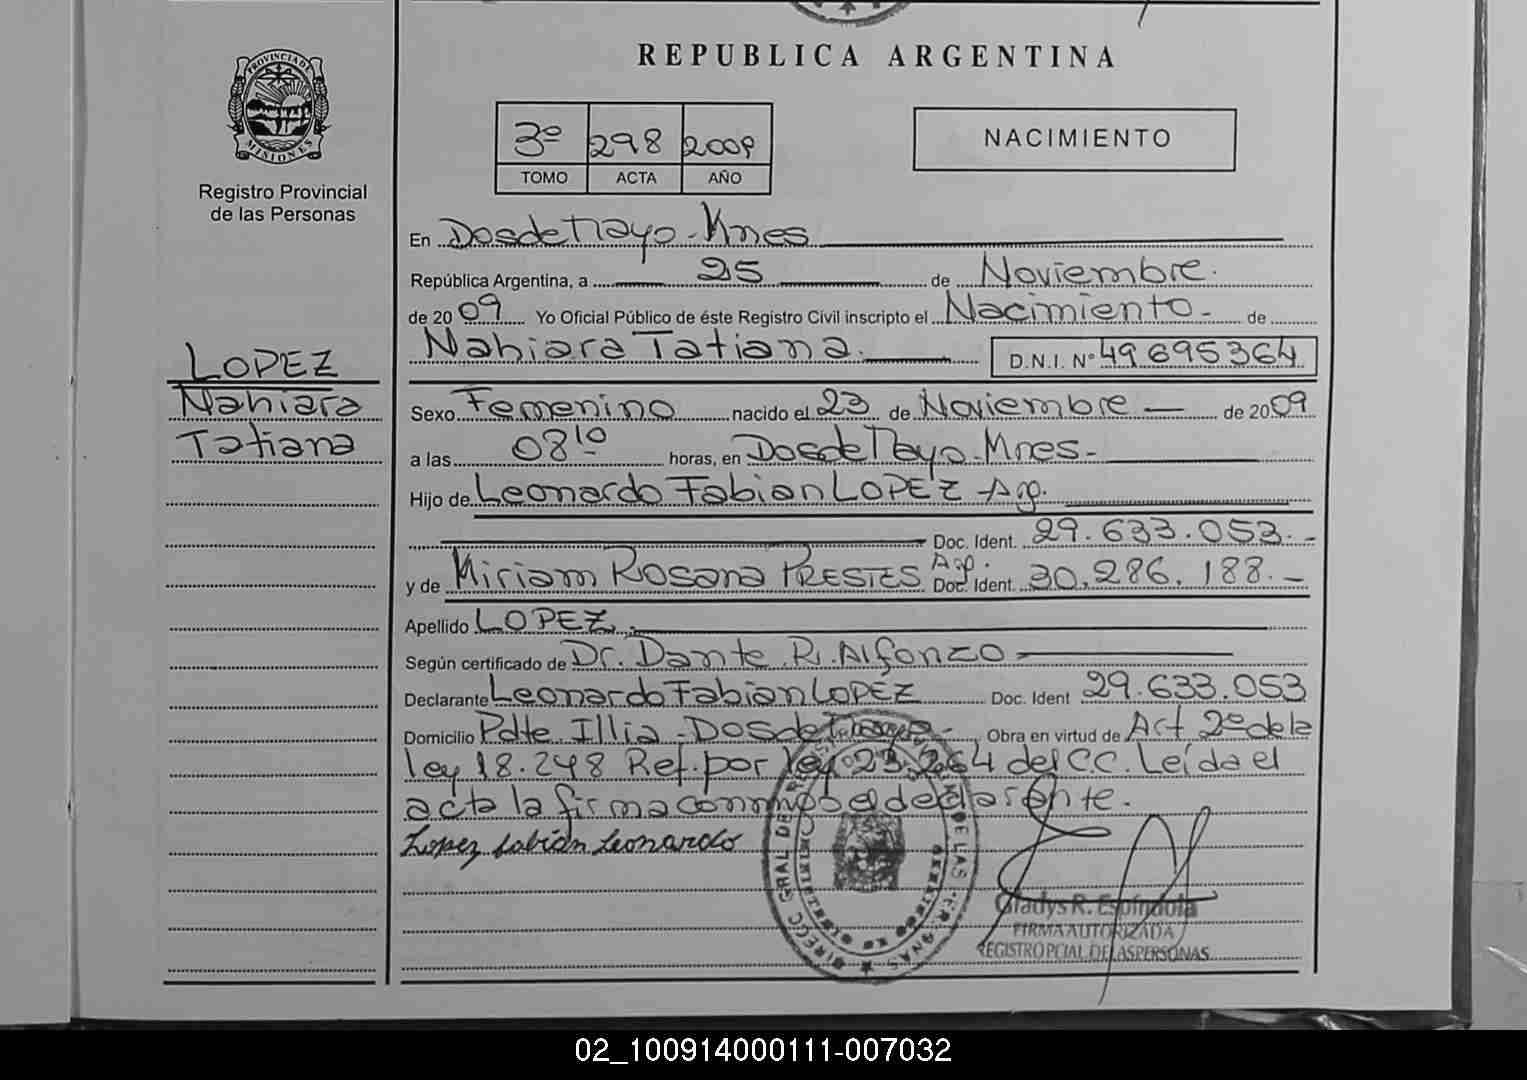 REPUBLICA ARGENTINA
PROVINCIA DE MISIONES
Registro Provincial
de las Personas
3º 298 2009
TOMO ACTA AÑO
NACIMIENTO
En Dos de Mayo - Mnes
República Argentina, a 25 de Noviembre.
de 2009 Yo Oficial Público de éste Registro Civil inscripto el Nacimiento - de
Nahiara Tatiana. D.N.I. Nº 49.695.364
LOPEZ
Nahiara
Tatiana
Sexo Femenino nacido el 23 de Noviembre — de 2009
a las 08 10 horas, en Dos de Mayo - Mnes -
Hijo de Leonardo Fabian LOPEZ Arg.
Doc. Ident. 29.633.053. -
y de Miriam Rosana PRESTES Arg. Doc. Ident. 30.286.188. -
Apellido LOPEZ.
Según certificado de Dr. Dante R. Alfonzo
Declarante Leonardo Fabian LOPEZ Doc. Ident 29.633.053
Domicilio Pdte Illia - Dos de Mayo - Obra en virtud de Art 2º de la
ley 18.248 Ref. por ley 23.264 del C.C. Leída el
acta la firma conmigo el declarante.
Lopez fabián Leonardo
Gladys R. Espíndola
FIRMA AUTORIZADA
REGISTRO PCIAL DE LAS PERSONAS
02_100914000111-007032